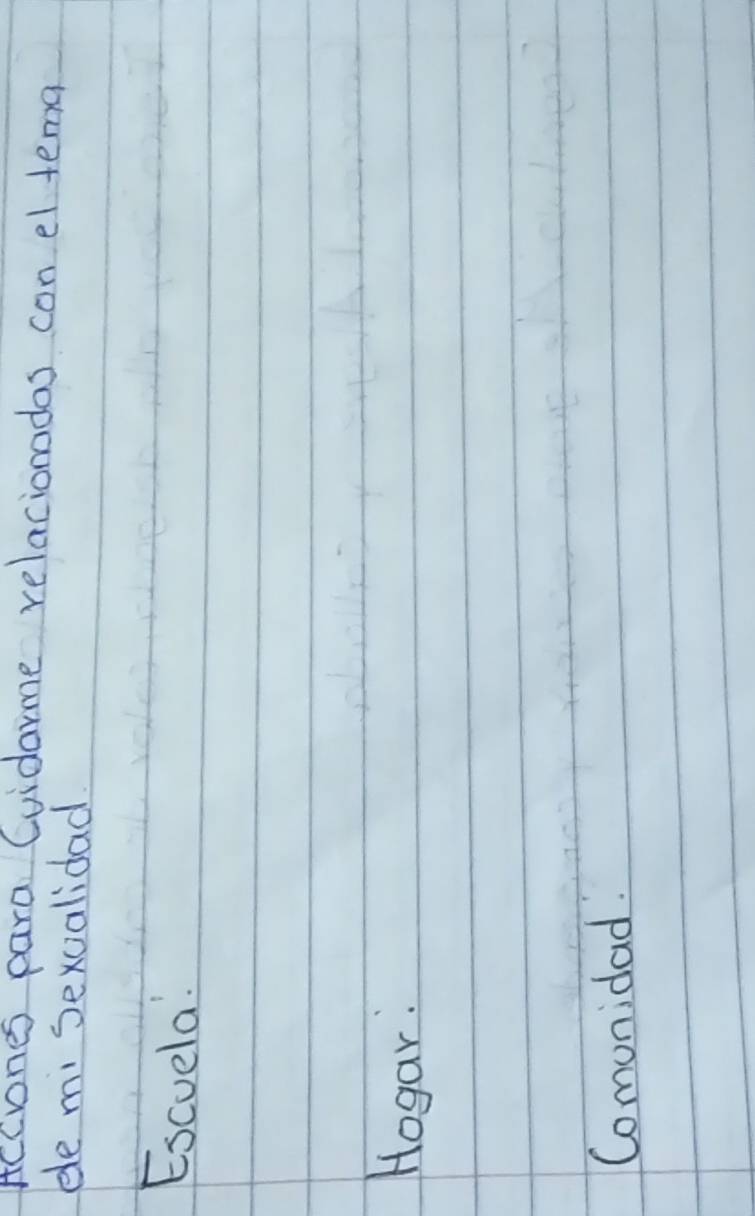 Acciones para Cuidarme relacionadas con el tema
de mi Sexualidad.
Escuela:
Hogar:
Comunidad: